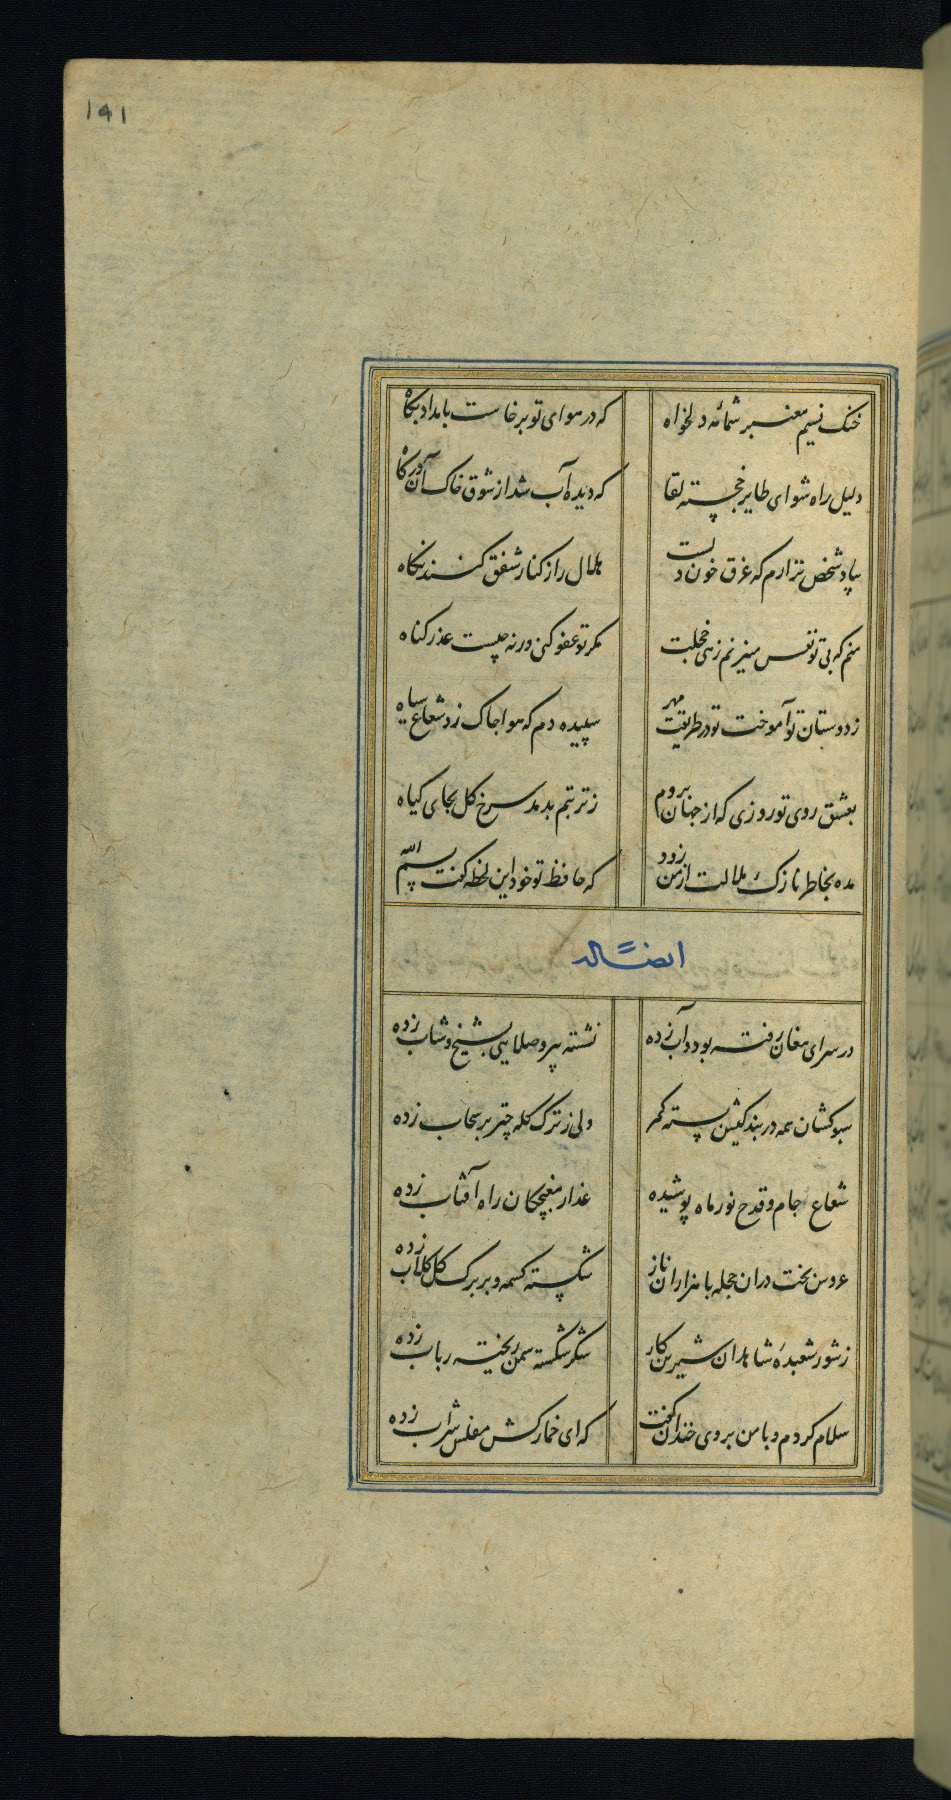 ۱۹۱
خنک نسیم معنبر شمائه دلخواه که در هوای تو برخاست بامداد بگاه
دلیل راه شو ای طایر خجسته لقا که دیده آب شد از شوق خاک آن درگاه
بیاد شخص نزارم که غرق خون دلست هلال را ز کنار شفق کنند نگاه
منم که بی تو نفس میزنم زهی خجلت مگر تو عفو کنی ورنه چیست عذر گناه
ز دوستان تو آموخت تو در طریقت مهر سپیده دم که هوا چاک زد شعاع سیاه
بعشق روی تو روزی که از جهان بروم ز تربتم بدمد سرخ گل بجای گیاه
مده بخاطر نازک ملالت از من زود که حافظ تو خود این لحظه گفت بسم الله
ایضاً له
در سرای مغان رفته بود و آب زده نشسته پیر و صلایی بشیخ و شاب زده
سبوکشان همه در بندگیش بسته کمر ولی ز ترک کله چتر بر سحاب زده
شعاع جام و قدح نور ماه پوشیده عذار مغبچگان راه آفتاب زده
عروس بخت دران حجله با هزاران ناز شکسته کسمه و بر برک گل گلاب زده
ز شور شعبدهٔ شاهدان شیرین کار شکر شکسته سمن ریخته رباب زده
سلام کردم و با من بروی خندان گفت که ای خمارکش مفلس شراب زده